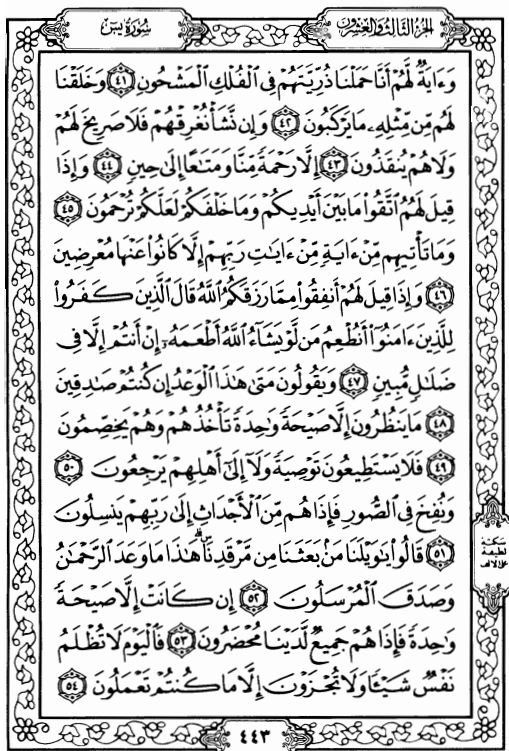 الجزء الثالث والعشرون
سورة يس
وَءَايَةٌ لَّهُمْ أَنَّا حَمَلْنَا ذُرِّيَّتَهُمْ فِي الْفُلْكِ الْمَشْحُونِ ٤١ وَخَلَقْنَا
لَهُم مِّن مِّثْلِهِۦ مَا يَرْكَبُونَ ٤٢ وَإِن نَّشَأْ نُغْرِقْهُمْ فَلَا صَرِيخَ لَهُمْ
وَلَا هُمْ يُنقَذُونَ ٤٣ إِلَّا رَحْمَةً مِّنَّا وَمَتَٰعًا إِلَىٰ حِينٍ ٤٤ وَإِذَا
قِيلَ لَهُمُ اتَّقُوا۟ مَا بَيْنَ أَيْدِيكُمْ وَمَا خَلْفَكُمْ لَعَلَّكُمْ تُرْحَمُونَ ٤٥
وَمَا تَأْتِيهِم مِّنْ ءَايَةٍ مِّنْ ءَايَٰتِ رَبِّهِمْ إِلَّا كَانُوا۟ عَنْهَا مُعْرِضِينَ
٤٦ وَإِذَا قِيلَ لَهُمْ أَنفِقُوا۟ مِمَّا رَزَقَكُمُ اللَّهُ قَالَ الَّذِينَ كَفَرُوا۟
لِلَّذِينَ ءَامَنُوٓا۟ أَنُطْعِمُ مَن لَّوْ يَشَآءُ اللَّهُ أَطْعَمَهُۥٓ إِنْ أَنتُمْ إِلَّا فِي
ضَلَٰلٍ مُّبِينٍ ٤٧ وَيَقُولُونَ مَتَىٰ هَٰذَا الْوَعْدُ إِن كُنتُمْ صَٰدِقِينَ
٤٨ مَا يَنظُرُونَ إِلَّا صَيْحَةً وَٰحِدَةً تَأْخُذُهُمْ وَهُمْ يَخِصِّمُونَ
٤٩ فَلَا يَسْتَطِيعُونَ تَوْصِيَةً وَلَآ إِلَىٰٓ أَهْلِهِمْ يَرْجِعُونَ ٥٠
وَنُفِخَ فِي الصُّورِ فَإِذَا هُم مِّنَ الْأَجْدَاثِ إِلَىٰ رَبِّهِمْ يَنسِلُونَ
٥١ قَالُوا۟ يَٰوَيْلَنَا مَنۢ بَعَثَنَا مِن مَّرْقَدِنَا ۜ ۗ هَٰذَا مَا وَعَدَ الرَّحْمَٰنُ
وَصَدَقَ الْمُرْسَلُونَ ٥٢ إِن كَانَتْ إِلَّا صَيْحَةً
وَٰحِدَةً فَإِذَا هُمْ جَمِيعٌ لَّدَيْنَا مُحْضَرُونَ ٥٣ فَالْيَوْمَ لَا تُظْلَمُ
نَفْسٌ شَيْـًٔا وَلَا تُجْزَوْنَ إِلَّا مَا كُنتُمْ تَعْمَلُونَ ٥٤
سكتة
لطيفة
على الالف
٤٤٣